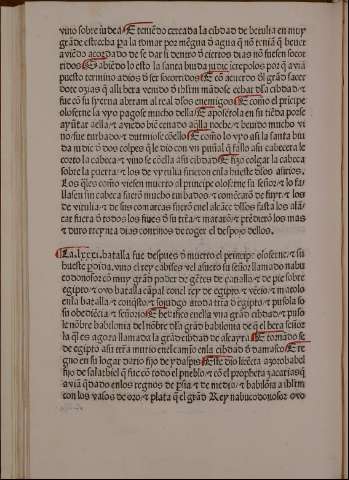 vino sobre iudea/ E teniẽdo cercada la cibdad de betulia en muy
grãde estrecha pa la tomar por mẽgua ð agua q̃ nõ teniã q̃ beuer
auiẽdo acordado de se dar si dentro ð ciertos dias nõ fuesen socor
ridos/ E sabiẽdo lo esto la santa biuda judic
puesto termino a dios ð ser socorridos/ E cõ acuerdo ðl grãd sacer
dote ozias q̃ alli bera
fue cõ su syerua abram al real ðlos enemigos/ E como el prĩcipe
oloferne la vyo pagose mucho della/ E aposẽtola en su tiẽda por se
ayũtar aella/ ⁊ aviẽdo biẽ cenado aq̃lla noche/ ⁊ beuido mucho vi
no/ fue turbado ⁊ durmiose/ E como lo vyo asi la santa biu
da iudic ð dos colpes q̃ le dio con vn puñal q̃ fallo asu cabecera le
corto la cabeca ⁊ vino se cõella asu cibdad/ E fizo colgar la cabeca
sobre la puerta/ ⁊ los de vytulia firieron enla hueste ðlos asirios.
Los q̃les como viesen muerto al prĩncipe oloferne su señor/ ⁊ lo fa
llasen sin cabeca fuerõ mucho turbados/ ⁊ comẽcarõ de fuyr/ ⁊ los
de vitulia/ ⁊ de sus comarcas fuerõ enel alcãce ðllos fasta los alã
car fuera ð todos los fines ð su trĩa/ ⁊ matarõ/ ⁊ prẽdierõ los mas
⁊ duro treynta dias continos de coger el despojo dellos.
La .lxxxi. batalla fue despues ð muerto el prĩncipe oloferne/ ⁊ su
hueste põida. vino el rey cãbises vel asuero su señor llamado nabu
codonosor cõ muy grãd poder de gẽtes de cauallo/ ⁊ de pie sobre
egipto/ ⁊ ovo batalla cãpal con el rey de egipto/ ⁊ vẽcio/ ⁊ matolo
enla batalla/ ⁊ conq̃sto/ ⁊ sojudgo atoda trĩa ð egipto/ ⁊ pusola so
su obediẽcia/ ⁊ señorio/ E hedifico enella vna grãd cibdad/ ⁊ puso
le nõbre babilonia del nõbre dla grãd babilonia de q̃ el hera señor
la q̃l es agora llamada la grãd cibdad de alcayra/ E tornado se
de egipto asu trĩa murio enel camĩo enla cibdad ð damasco/ E re
gno en su logar dario fijo de ydaspis/ Este dio liceẽcia azorobabel
fijo de salathiel q̃ fue cõ todo el pueblo/ ⁊ cõ el propheta zacarias q̃
aviã q̃dado enlos regnos de psia/ ⁊ de media/ ⁊ babilonia a ihlm
con los vasos de oro/ ⁊ plata q̃ el grãd Rey nabucodonosor ovo